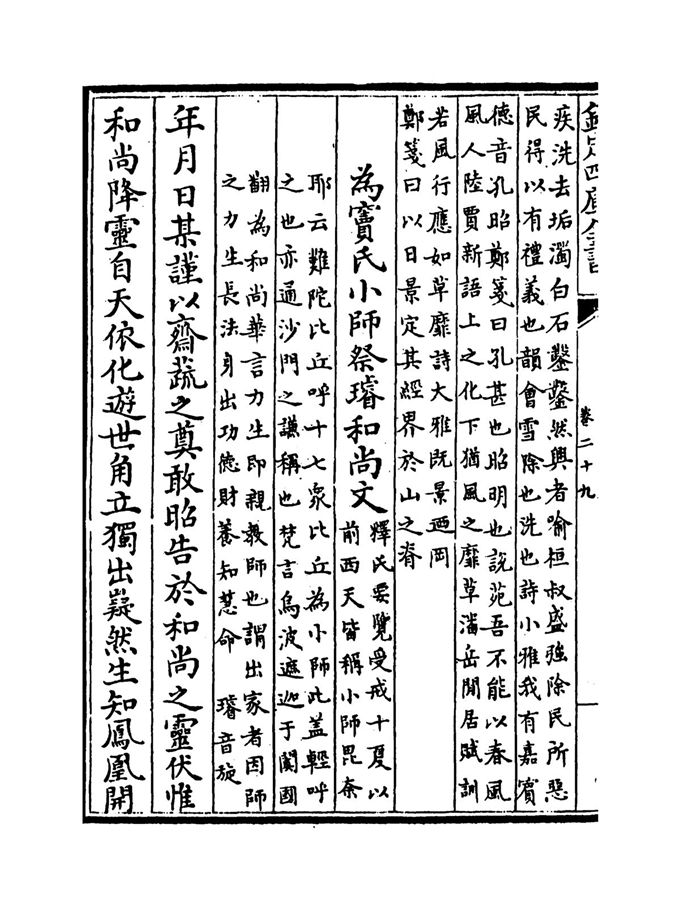 欽定四庫全書
卷二十九
疾洗去垢濁白石鑿鑿然興者喻桓叔盛強除民所惡
民得以有禮義也韻會雪除也洗也詩小雅我有嘉賓
德音孔昭鄭箋曰孔甚也昭明也說苑吾不能以春風
風人陸賈新語上之化下猶風之靡草潘岳閒居賦訓
若風行應如草靡詩大雅既景迺岡
鄭箋曰以日景定其經界於山之脊
為竇氏小師祭璿和尚文
釋氏要覽受戒十夏以
前西天皆稱小師毘奈
耶云難陀比丘呼十七眾比丘為小師此蓋輕呼
之也亦通沙門之謙稱也梵言烏波遮迦于闐國
翻為和尚華言力生即親教師也謂出家者因師
之力生長法身出功德財養知慧命 璿音旋
年月日某謹以齋蔬之奠敢昭告於和尚之靈伏惟
和尚降靈自天依化遊世角立獨出嶷然生知鳳凰開